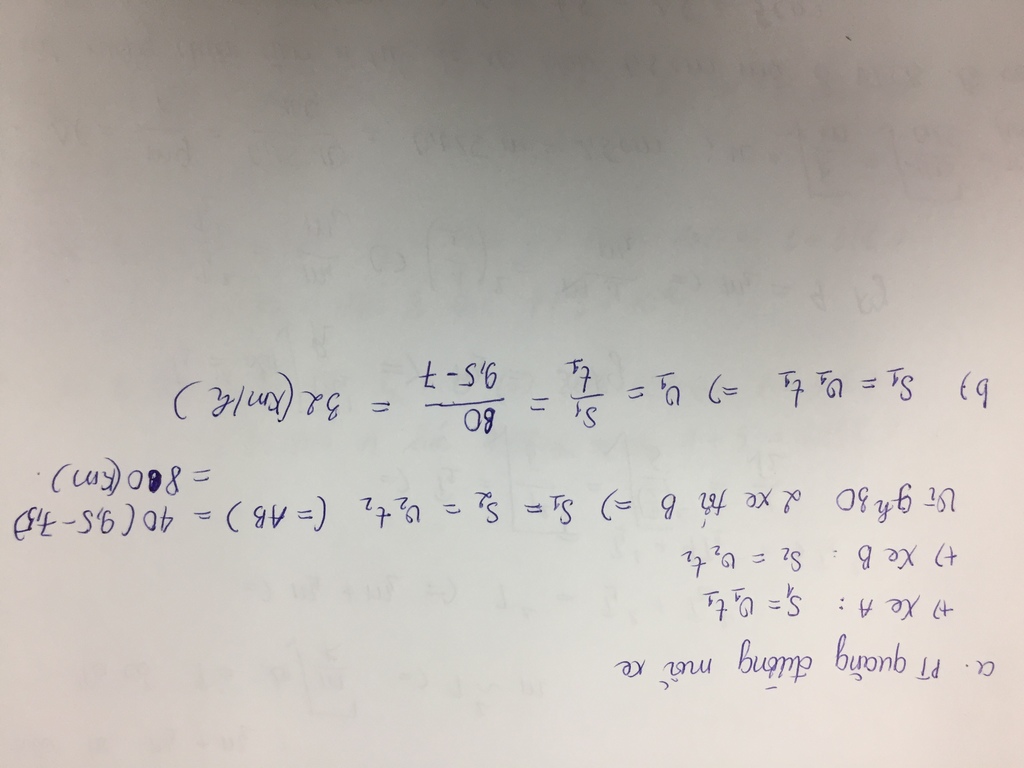 a. PT quãng đường mỗi xe
+) Xe A : S₁ = v₁t₁
+) Xe B : S₂ = v₂t₂
Vì 9h30 2 xe tới B => S₁ = S₂ = v₂t₂ (= AB) = 40(9,5 - 7,5)
= 80(km).
b) S₁ = v₁t₁ => v₁ = S₁/t₁ = 80/(9,5 - 7) = 32(km/h)